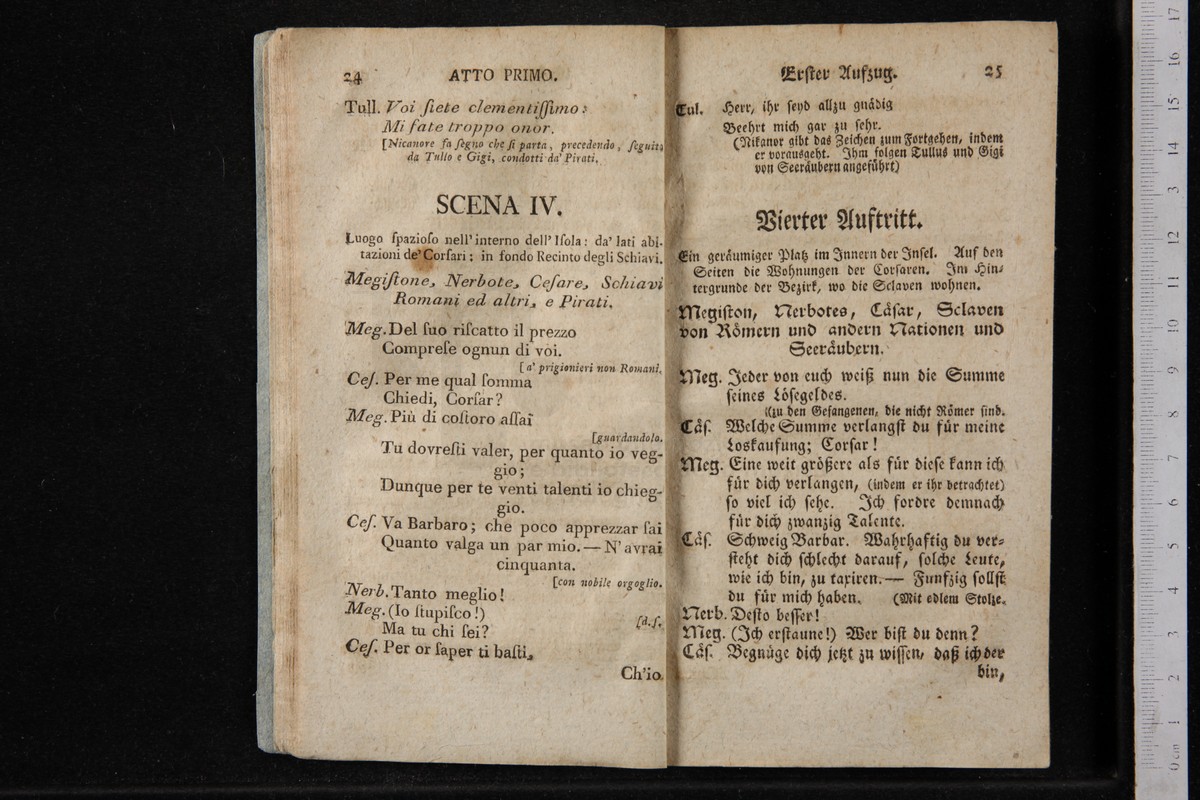 24 ATTO PRIMO.
Tull. Voi ſiete clementiſſimo:
Mi fate troppo onor.
[Nicanore fa ſegno che ſi parta, precedendo, ſeguito
da Tullo e Gigi, condotti da' Pirati.
SCENA IV.
Luogo ſpazioſo nell' interno dell' Iſola: da' lati abi-
tazioni de' Corſari; in fondo Recinto degli Schiavi.
Megiſtone, Nerbote, Ceſare, Schiavi
Romani ed altri, e Pirati.
Meg. Del ſuo riſcatto il prezzo
Compreſe ognun di voi.
[a' prigionieri non Romani.
Ceſ. Per me qual ſomma
Chiedi, Corſar?
Meg. Più di coſtoro aſſai
[guardandolo.
Tu dovreſti valer, per quanto io veg-
gio;
Dunque per te venti talenti io chieg-
gio.
Ceſ. Va Barbaro; che poco apprezzar ſai
Quanto valga un par mio. — N' avrai
cinquanta.
[con nobile orgoglio.
Nerb. Tanto meglio!
Meg. (Io ſtupiſco!)
[d. ſ.
Ma tu chi ſei?
Ceſ. Per or ſaper ti baſti,
Ch'io
Erſter Aufzug. 25
Tul. Herr, ihr ſeyd allzu gnädig
Beehrt mich gar zu ſehr.
(Nikanor gibt das Zeichen zum Fortgehen, indem
er vorausgeht. Ihm folgen Tullus und Gigi
von Seeräubern angeführt)
Vierter Auftritt.
Ein geräumiger Platz im Innern der Inſel. Auf den
Seiten die Wohnungen der Corſaren. Im Hin-
tergrunde der Bezirk, wo die Sclaven wohnen.
Megiſton, Nerbotes, Cäſar, Sclaven
von Römern und andern Nationen und
Seeräubern.
Meg. Jeder von euch weiß nun die Summe
ſeines Löſegeldes.
(zu den Gefangenen, die nicht Römer ſind.
Cäſ. Welche Summe verlangſt du für meine
Loskaufung; Corſar!
Meg. Eine weit größere als für dieſe kann ich
für dich verlangen, (indem er ihr betrachtet)
ſo viel ich ſehe. Ich fordre demnach
für dich zwanzig Talente.
Cäſ. Schweig Barbar. Wahrhaftig du ver-
ſteht dich ſchlecht darauf, ſolche Leute,
wie ich bin, zu taxiren. — Funfzig ſollſt
du für mich haben. (Mit edlem Stolze.
Nerb. Deſto beſſer!
Meg. (Ich erſtaune!) Wer biſt du denn?
Cäſ. Begnüge dich jetzt zu wiſſen, daß ich der
bin,